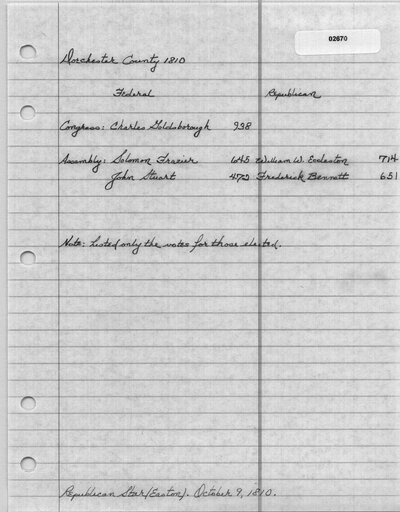 02670
Dorchester County 1810
Federal Republican
Congress: Charles Goldsborough 938
Assembly: Solomon Frazier 645 William W. Eccleston 714
John Stuart 472 Frederick Bennett 651
Note: Listed only the votes for those elected.
Republican Star (Easton). October 9, 1810.